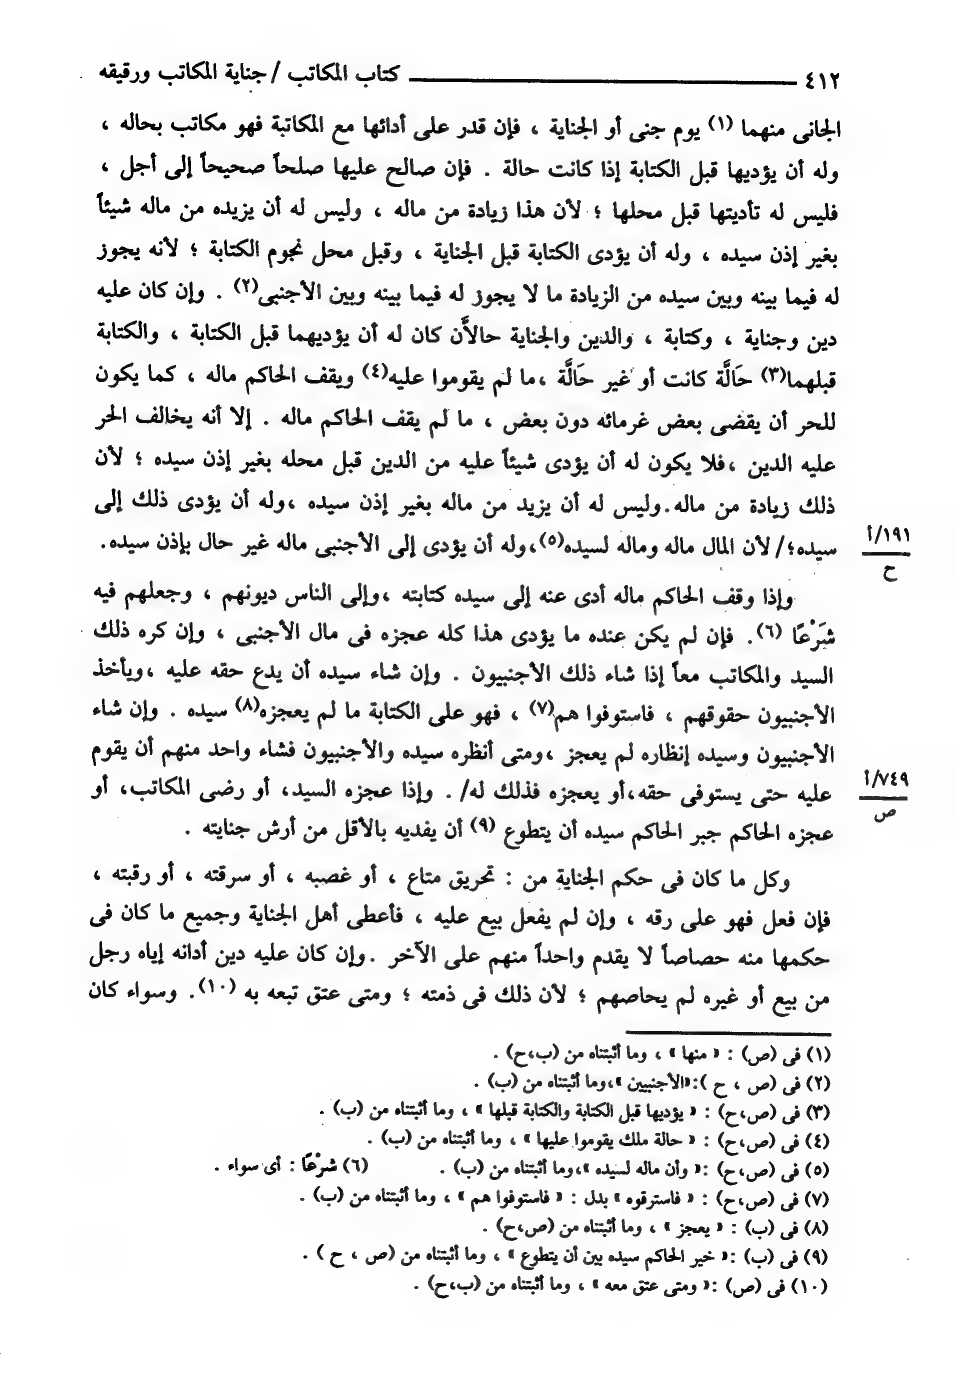 ٤١٢ ــــــــــــــــــــ كتاب المكاتب / جناية المكاتب ورقيقه
الجانى منهما (١) يوم جنى أو الجناية ، فإن قدر على أدائها مع المكاتبة فهو مكاتب بحاله ،
وله أن يؤديها قبل الكتابة إذا كانت حالة . فإن صالح عليها صلحاً صحيحاً إلى أجل ،
فليس له تأديتها قبل محلها ؛ لأن هذا زيادة من ماله ، وليس له أن يزيده من ماله شيئاً
بغير إذن سيده ، وله أن يؤدى الكتابة قبل الجناية ، وقبل محل نجوم الكتابة ؛ لأنه يجوز
له فيما بينه وبين سيده من الزيادة ما لا يجوز له فيما بينه وبين الأجنبى(٢) . وإن كان عليه
دين وجناية ، وكتابة ، والدين والجناية حالاَّن كان له أن يؤديهما قبل الكتابة ، والكتابة
قبلهما(٣) حَالَّة كانت أو غير حَالَّة ،ما لم يقوموا عليه(٤) ويقف الحاكم ماله ، كما يكون
للحر أن يقضى بعض غرمائه دون بعض ، ما لم يقف الحاكم ماله . إلا أنه يخالف الحر
عليه الدين ،فلا يكون له أن يؤدى شيئاً عليه من الدين قبل محله بغير إذن سيده ؛ لأن
ذلك زيادة من ماله.وليس له أن يزيد من ماله بغير إذن سيده ،وله أن يؤدى ذلك إلى
سيده؛/ لأن المال ماله وماله لسيده(٥)،وله أن يؤدى إلى الأجنبى ماله غير حال بإذن سيده.
١٩١/أ
ح
وإذا وقف الحاكم ماله أدى عنه إلى سيده كتابته ،وإلى الناس ديونهم ، وجعلهم فيه
شَرْعًا (٦). فإن لم يكن عنده ما يؤدى هذا كله عجزه فى مال الأجنبى ، وإن كره ذلك
السيد والمكاتب معاً إذا شاء ذلك الأجنبيون . وإن شاء سيده أن يدع حقه عليه ،ويأخذ
الأجنبيون حقوقهم ، فاستوفوا هم(٧) ، فهو على الكتابة ما لم يعجزه(٨) سيده . وإن شاء
الأجنبيون وسيده إنظاره لم يعجز ،ومتى أنظره سيده والأجنبيون فشاء واحد منهم أن يقوم
عليه حتى يستوفى حقه،أو يعجزه فذلك له/. وإذا عجزه السيد، أو رضى المكاتب، أو
٧٤٩/أ
ص
عجزه الحاكم جبر الحاكم سيده أن يتطوع (٩) أن يفديه بالأقل من أرش جنايته .
وكل ما كان فى حكم الجناية من : تحريق متاع ، أو غصبه ، أو سرقته ، أو رقبته ،
فإن فعل فهو على رقه ، وإن لم يفعل بيع عليه ، فأعطى أهل الجناية وجميع ما كان فى
حكمها منه حصاصاً لا يقدم واحداً منهم على الآخر .وإن كان عليه دين أدانه إياه رجل
من بيع أو غيره لم يحاصهم ؛ لأن ذلك فى ذمته ؛ ومتى عتق تبعه به (١٠). وسواء كان
(١) فى (ص) : « منها » ، وما أثبتناه من (ب،ح) .
(٢) فى (ص ، ح ):«الأجنبيين »،وما أثبتناه من (ب) .
(٣) فى (ص،ح) : « يؤديها قبل الكتابة والكتابة قبلها » ، وما أثبتناه من (ب) .
(٤) فى (ص،ح) : « حالة ملك يقوموا عليها » ، وما أثبتناه من (ب) .
(٥) فى (ص،ح) :« وأن ماله لسيده »،وما أثبتناه من (ب) . (٦) شرْعًا : أى سواء .
(٧) فى (ص،ح) : « فاسترقوه » بدل : « فاستوفوا هم » ، وما أثبتناه من (ب) .
(٨) فى (ب) : « يعجز » ، وما أثبتناه من (ص،ح) .
(٩) فى (ب) :« خير الحاكم سيده بين أن يتطوع » ، وما أثبتناه من (ص ، ح ) .
(١٠) فى (ص) :« ومتى عتق معه » ، وما أثبتناه من (ب،ح) .